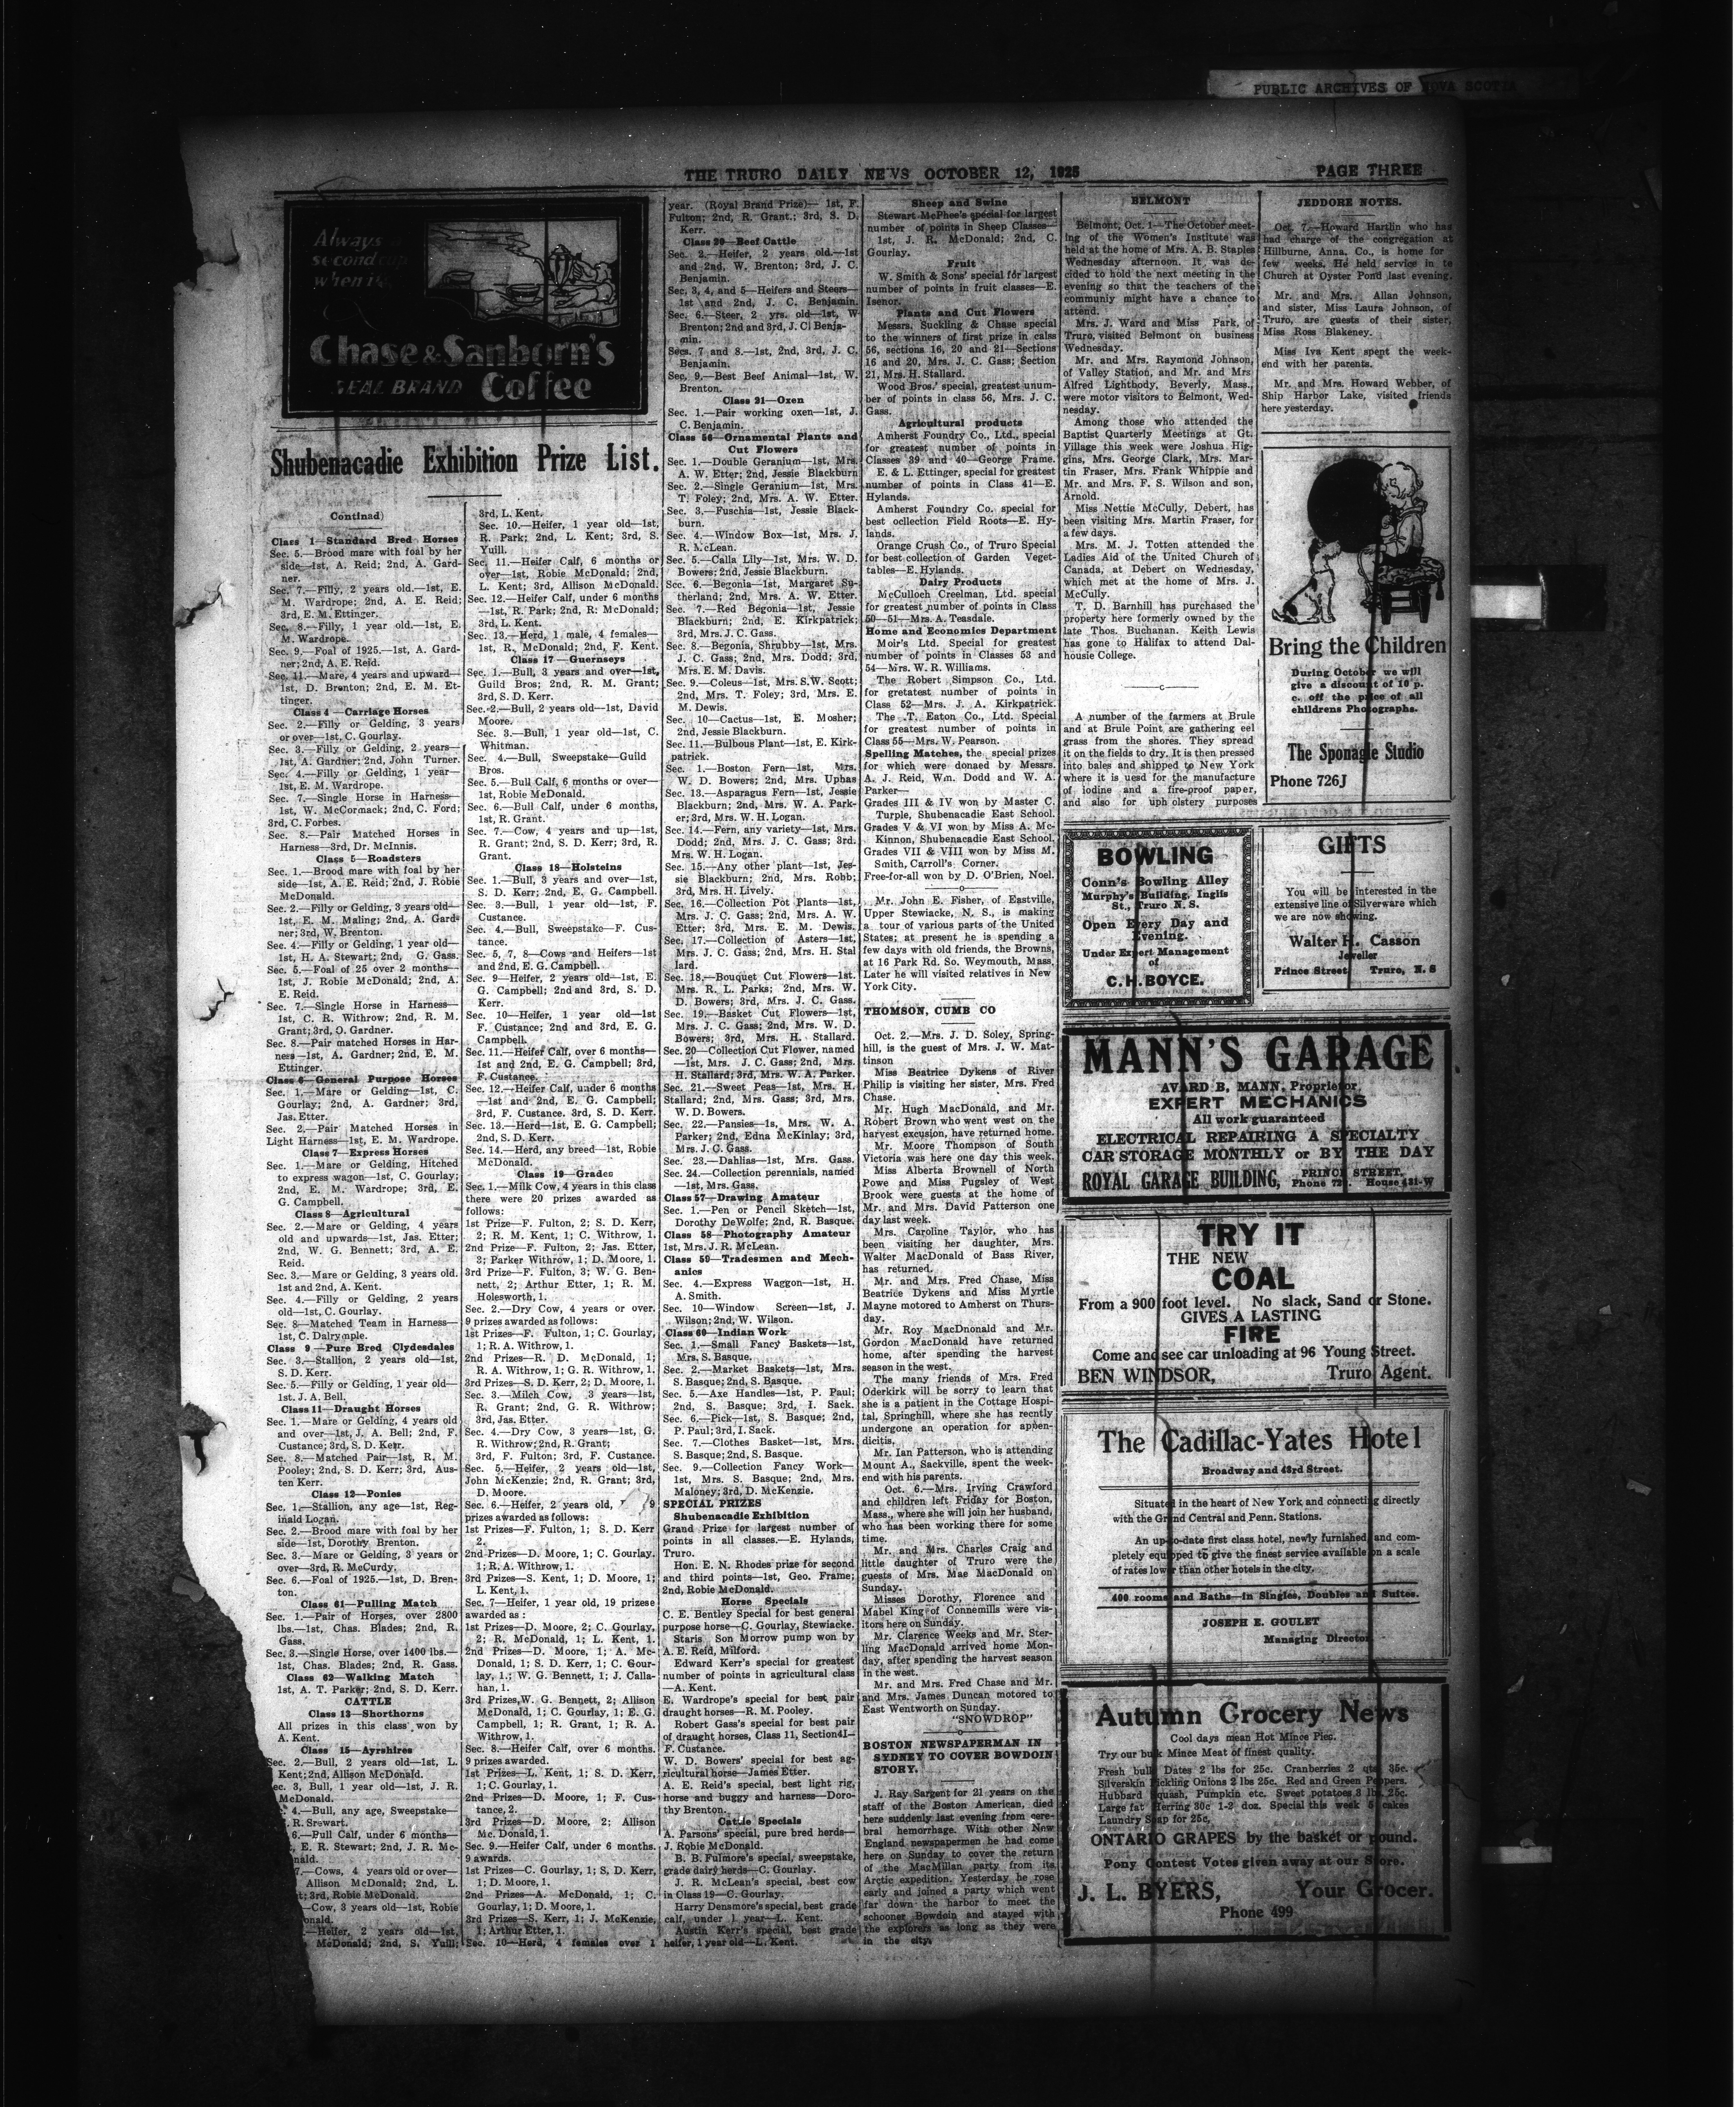 PUBLIC ARCHIVES OF NOVA SCOTIA
THE TRURO DAILY NEWS OCTOBER 12, 1925
PAGE THREE
Always a
second cup
when it's
Chase & Sanborn's
SEAL BRAND Coffee
Shubenacadie Exhibition Prize List.
Continad)
Class 1—Standard Bred Horses
Sec. 5.—Brood mare with foal by her
side—1st, A. Reid; 2nd, A. Gard-
ner.
Sec. 7.—Filly, 2 years old.—1st, E.
M. Wardrope; 2nd, A. E. Reid;
3rd, E. M. Ettinger.
Sec. 8.—Filly, 1 year old.—1st, E.
M. Wardrope.
Sec. 9.—Foal of 1925.—1st, A. Gard-
ner; 2nd, A. E. Reid.
Sec. 11.—Mare, 4 years and upward—
1st, D. Brenton; 2nd, E. M. Et-
tinger.
Class 4—Carriage Horses
Sec. 2.—Filly or Gelding, 3 years
or over—1st, C. Gourlay.
Sec. 3.—Filly or Gelding, 2 years—
1st, A. Gardner; 2nd, John Turner.
Sec. 4.—Filly or Gelding, 1 year—
1st, E. M. Wardrope.
Sec. 7.—Single Horse in Harness—
1st, W. McCormack; 2nd, C. Ford;
3rd, C. Forbes.
Sec. 8.—Pair Matched Horses in
Harness—3rd, Dr. McInnis.
Class 5—Roadsters
Sec. 1.—Brood mare with foal by her
side—1st, A. E. Reid; 2nd, J. Robie
McDonald.
Sec. 2.—Filly or Gelding, 3 years old—
1st, E. M. Maling; 2nd, A. Gard-
ner; 3rd, W. Brenton.
Sec. 4.—Filly or Gelding, 1 year old—
1st, H. A. Stewart; 2nd, G. Gass.
Sec. 5.—Foal of 25 over 2 months—
1st, J. Robie McDonald; 2nd, A.
E. Reid.
Sec. 7.—Single Horse in Harness—
1st, C. R. Withrow; 2nd, R. M.
Grant; 3rd, O. Gardner.
Sec. 8.—Pair matched Horses in Har-
ness—1st, A. Gardner; 2nd, E. M.
Ettinger.
Class 6—General Purpose Horses
Sec. 1.—Mare or Gelding—1st, C.
Gourlay; 2nd, A. Gardner; 3rd,
Jas. Etter.
Sec. 2.—Pair Matched Horses in
Light Harness—1st, E. M. Wardrope.
Class 7—Express Horses
Sec. 1.—Mare or Gelding, Hitched
to express wagon—1st, C. Gourlay;
2nd, E. M. Wardrope; 3rd, E.
G. Campbell.
Class 8—Agricultural
Sec. 2.—Mare or Gelding, 4 years
old and upwards—1st, Jas. Etter;
2nd, W. G. Bennett; 3rd, A. E.
Reid.
Sec. 3.—Mare or Gelding, 3 years old.
1st and 2nd, A. Kent.
Sec. 4.—Filly or Gelding, 2 years
old—1st, C. Gourlay.
Sec. 8—Matched Team in Harness—
1st, C. Dalrymple.
Class 9—Pure Bred Clydesdales
Sec. 3.—Stallion, 2 years old—1st,
S. D. Kerr.
Sec. 5.—Filly or Gelding, 1 year old—
1st. J. A. Bell.
Class 11—Draught Horses
Sec. 1.—Mare or Gelding, 4 years old
and over—1st, J. A. Bell; 2nd, F.
Custance; 3rd, S. D. Kerr.
Sec. 8.—Matched Pair—1st, R. M.
Pooley; 2nd, S. D. Kerr; 3rd, Aus-
ten Kerr.
Class 12—Ponies
Sec. 1.—Stallion, any age—1st, Reg-
inald Logan.
Sec. 2.—Brood mare with foal by her
side—1st, Dorothy Brenton.
Sec. 3.—Mare or Gelding, 3 years or
over—3rd, R. McCurdy.
Sec. 6.—Foal of 1925.—1st, D. Bren-
ton.
Class 61—Pulling Match
Sec. 1.—Pair of Horses, over 2800
lbs.—1st, Chas. Blades; 2nd, R.
Gass.
Sec. 3.—Single Horse, over 1400 lbs.—
1st, Chas. Blades; 2nd, R. Gass.
Class 62—Walking Match
1st, A. T. Parker; 2nd, S. D. Kerr.
CATTLE
Class 13—Shorthorns
All prizes in this class won by
A. Kent.
Class 15—Ayrshires
Sec. 2.—Bull, 2 years old—1st, L.
Kent; 2nd, Allison McDonald.
ec. 3, Bull, 1 year old—1st, J. R.
McDonald.
4.—Bull, any age, Sweepstake—
R. Stewart.
6.—Pull Calf, under 6 months—
E. R. Stewart; 2nd, J. R. Mc-
nald.
7.—Cows, 4 years old or over—
Allison McDonald; 2nd, L.
t; 3rd, Robie McDonald.
—Cow, 3 years old—1st, Robie
onald.
—Heifer, 2 years old—1st,
McDonald; 2nd, S. Yuill;
3rd, L. Kent.
Sec. 10.—Heifer, 1 year old—1st,
R. Park; 2nd, L. Kent; 3rd, S.
Yuill.
Sec. 11.—Heifer Calf, 6 months or
over—1st, Robie McDonald; 2nd,
L. Kent; 3rd, Allison McDonald.
Sec. 12.—Heifer Calf, under 6 months
—1st, R. Park; 2nd, R. McDonald;
3rd, L. Kent.
Sec. 13.—Herd, 1 male, 4 females—
1st, R. McDonald; 2nd, F. Kent.
Class 17—Guernseys
Sec. 1.—Bull, 3 years and over—1st,
Guild Bros; 2nd, R. M. Grant;
3rd, S. D. Kerr.
Sec. 2.—Bull, 2 years old—1st, David
Moore.
Sec. 3.—Bull, 1 year old—1st, C.
Whitman.
Sec. 4.—Bull, Sweepstake—Guild
Bros.
Sec. 5.—Bull Calf, 6 months or over—
1st, Robie McDonald.
Sec. 6.—Bull Calf, under 6 months,
1st, R. Grant.
Sec. 7.—Cow, 4 years and up—1st,
R. Grant; 2nd, S. D. Kerr; 3rd, R.
Grant.
Class 18—Holsteins
Sec. 1.—Bull, 3 years and over—1st,
S. D. Kerr; 2nd, E. G. Campbell.
Sec. 3.—Bull, 1 year old—1st, F.
Custance.
Sec. 4.—Bull, Sweepstake—F. Cus-
tance.
Sec. 5, 7, 8—Cows and Heifers—1st
and 2nd, E. G. Campbell.
Sec. 9—Heifer, 2 years old—1st, E.
G. Campbell; 2nd and 3rd, S. D.
Kerr.
Sec. 10—Heifer, 1 year old—1st
F. Custance; 2nd and 3rd, E. G.
Campbell.
Sec. 11.—Heifer Calf, over 6 months—
1st and 2nd, E. G. Campbell; 3rd,
F. Custance.
Sec. 12.—Heifer Calf, under 6 months
—1st and 2nd, E. G. Campbell;
3rd, F. Custance. 3rd, S. D. Kerr.
Sec. 13.—Herd—1st, E. G. Campbell;
2nd, S. D. Kerr.
Sec. 14.—Herd, any breed—1st, Robie
McDonald.
Class 19—Grades
Sec. 1.—Milk Cow, 4 years in this class
there were 20 prizes awarded as
follows:
1st Prize—F. Fulton, 2; S. D. Kerr,
2; R. M. Kent, 1; C. Withrow, 1.
2nd Prize—F. Fulton, 2; Jas. Etter,
3; Parker Withrow, 1; D. Moore, 1.
3rd Prize—F. Fulton, 3; W. G. Ben-
nett, 2; Arthur Etter, 1; R. M.
Holesworth, 1.
Sec. 2.—Dry Cow, 4 years or over.
9 prizes awarded as follows:
1st Prizes—F. Fulton, 1; C. Gourlay,
1; R. A. Withrow, 1.
2nd Prizes—R. D. McDonald, 1;
R. A. Withrow, 1; G. R. Withrow, 1.
3rd Prizes—S. D. Kerr, 2; D. Moore, 1.
Sec. 3.—Milch Cow, 3 years—1st,
R. Grant; 2nd, G. R. Withrow;
3rd, Jas. Etter.
Sec. 4.—Dry Cow, 3 years—1st, G.
R. Withrow; 2nd, R. Grant;
3rd, F. Fulton; 3rd, F. Custance.
Sec. 5.—Heifer, 2 years old—1st,
John McKenzie; 2nd, R. Grant; 3rd,
D. Moore.
Sec. 6.—Heifer, 2 years old, 9
prizes awarded as follows:
1st Prizes—F. Fulton, 1; S. D. Kerr
2.
2nd Prizes—D. Moore, 1; C. Gourlay.
1; R. A. Withrow, 1.
3rd Prizes—S. Kent, 1; D. Moore, 1;
L. Kent, 1.
Sec. 7—Heifer, 1 year old, 19 prizese
awarded as:
1st Prizes—D. Moore, 2; C. Gourlay,
2; R. McDonald, 1; L. Kent, 1.
2nd Prizes—D. Moore, 1; A. Mc-
Donald, 1; S. D. Kerr, 1; C. Gour-
lay, 1.; W. G. Bennett, 1; J. Calla-
han, 1.
3rd Prizes, W. G. Bennett, 2; Allison
McDonald, 1; C. Gourlay, 1; E. G.
Campbell, 1; R. Grant, 1; R. A.
Withrow, 1.
Sec. 8.—Heifer Calf, over 6 months.
9 prizes awarded.
1st Prizes—L. Kent, 1; S. D. Kerr,
1; C. Gourlay, 1.
2nd Prizes—D. Moore, 1; F. Cus-
tance, 2.
3rd Prizes—D. Moore, 2; Allison
Mc. Donald, 1.
Sec. 9.—Heifer Calf, under 6 months.
9 awards.
1st Prizes—C. Gourlay, 1; S. D. Kerr,
1; D. Moore, 1.
2nd Prizes—A. McDonald, 1; C.
Gourlay, 1; D. Moore, 1.
3rd Prizes—S. Kerr, 1; J. McKenzie,
1; Arthur Etter, 1.
Sec. 10—Herd, 4 females over 1
year. (Royal Brand Prize)— 1st, F.
Fulton; 2nd, R. Grant.; 3rd, S. D.
Kerr.
Class 20—Beef Cattle
Sec. 2.—Heifer, 2 years old.—1st
and 2nd, W. Brenton; 3rd, J. C.
Benjamin.
Sec. 3, 4, and 5—Heifers and Steers—
1st and 2nd, J. C. Benjamin.
Sec. 6.—Steer, 2 yrs. old—1st, W
Brenton; 2nd and 3rd, J. C. Benja-
min.
Secs. 7 and 8.—1st, 2nd, 3rd, J. C.
Benjamin.
Sec. 9.—Best Beef Animal—1st, W.
Brenton.
Class 21—Oxen
Sec. 1.—Pair working oxen—1st, J.
C. Benjamin.
Class 56—Ornamental Plants and
Cut Flowers
Sec. 1.—Double Geranium—1st, Mrs.
A. W. Etter; 2nd, Jessie Blackburn
Sec. 2.—Single Geranium—1st, Mrs.
T. Foley; 2nd, Mrs. A. W. Etter.
Sec. 3.—Fuschia—1st, Jessie Black-
burn.
Sec. 4.—Window Box—1st, Mrs. J.
R. McLean.
Sec. 5.—Calla Lily—1st, Mrs. W. D.
Bowers; 2nd, Jessie Blackburn.
Sec. 6.—Begonia—1st, Margaret Su-
therland; 2nd, Mrs. A. W. Etter.
Sec. 7.—Red Begonia—1st, Jessie
Blackburn; 2nd, E. Kirkpatrick;
3rd, Mrs. J. C. Gass.
Sec. 8.—Begonia, Shrubby—1st, Mrs.
J. C. Gass; 2nd, Mrs. Dodd; 3rd,
Mrs. E. M. Davis.
Sec. 9.—Coleus—1st, Mrs. S.W. Scott;
2nd, Mrs. T. Foley; 3rd, Mrs. E.
M. Dewis.
Sec. 10—Cactus—1st, E. Mosher;
2nd, Jessie Blackburn.
Sec. 11.—Bulbous Plant—1st, E. Kirk-
patrick.
Sec. 1.—Boston Fern—1st, Mrs.
W. D. Bowers; 2nd, Mrs. Uphas
Sec. 13.—Asparagus Fern—1st, Jessie
Blackburn; 2nd, Mrs. W. A. Park-
er; 3rd, Mrs. W. H. Logan.
Sec. 14.—Fern, any variety—1st, Mrs.
Dodd; 2nd, Mrs. J. C. Gass; 3rd.
Mrs. W. H. Logan.
Sec. 15.—Any other plant—1st, Jes-
sie Blackburn; 2nd, Mrs. Robb;
3rd, Mrs. H. Lively.
Sec. 16.—Collection Pot Plants—1st,
Mrs. J. C. Gass; 2nd, Mrs. A. W.
Etter; 3rd, Mrs. E. M. Dewis.
Sec. 17.—Collection of Asters—1st,
Mrs. J. C. Gass; 2nd, Mrs. H. Stal
lard.
Sec. 18.—Bouquet Cut Flowers—1st.
Mrs. R. L. Parks; 2nd, Mrs. W.
D. Bowers; 3rd, Mrs. J. C. Gass.
Sec. 19.—Basket Cut Flowers—1st,
Mrs. J. C. Gass; 2nd, Mrs. W. D.
Bowers; 3rd, Mrs. H. Stallard.
Sec. 20—Collection Cut Flower, named
—1st, Mrs. J. C. Gass; 2nd, Mrs.
H. Stallard; 3rd, Mrs. W. A. Parker.
Sec. 21.—Sweet Peas—1st, Mrs. H.
Stallard; 2nd, Mrs. Gass; 3rd, Mrs.
W. D. Bowers.
Sec. 22.—Pansies—1s, Mrs. W. A.
Parker; 2nd, Edna McKinlay; 3rd,
Mrs. J. C. Gass.
Sec. 23.—Dahlias—1st, Mrs. Gass.
Sec. 24.—Collection perennials, named
—1st, Mrs. Gass.
Class 57—Drawing Amateur
Sec. 1.—Pen or Pencil Sketch—1st,
Dorothy DeWolfe; 2nd, R. Basque.
Class 58—Photography Amateur
1st, Mrs. J. R. McLean.
Class 59—Tradesmen and Mech-
anics
Sec. 4.—Express Waggon—1st, H.
A. Smith.
Sec. 10—Window Screen—1st, J.
Wilson; 2nd, W. Wilson.
Class 60—Indian Work
Sec. 1.—Small Fancy Baskets—1st,
Mrs. S. Basque.
Sec. 2.—Market Baskets—1st, Mrs.
S. Basque; 2nd, S. Basque.
Sec. 5.—Axe Handles—1st, P. Paul;
2nd, S. Basque; 3rd, I. Sack.
Sec. 6.—Pick—1st, S. Basque; 2nd,
P. Paul; 3rd, I. Sack.
Sec. 7.—Clothes Basket—1st, Mrs.
S. Basque; 2nd, S. Basque.
Sec. 9.—Collection Fancy Work—
1st, Mrs. S. Basque; 2nd, Mrs.
Maloney; 3rd, D. McKenzie.
SPECIAL PRIZES
Shubenacadie Exhibition
Grand Prize for largest number of
points in all classes.—E. Hylands,
Truro.
Hon. E. N. Rhodes prize for second
and third points—1st, Geo. Frame;
2nd, Robie McDonald.
Horse Specials
C. E. Bentley Special for best general
purpose horse—C. Gourlay, Stewiacke.
Staris Son Morrow pump won by
A. E. Reid, Milford.
Edward Kerr's special for greatest
number of points in agricultural class
—A. Kent.
E. Wardrope's special for best pair
draught horses—R. M. Pooley.
Robert Gass's special for best pair
of draught horses, Class 11, Section41—
F. Custance.
W. D. Bowers' special for best ag-
ricultural horse—James Etter.
A. E. Reid's special, best light rig,
horse and buggy and harness—Doro-
thy Brenton.
Cattle Specials
A. Parsons' special, pure bred herds—
J. Robie McDonald.
B. B. Fulmore's special, sweepstake,
grade dairy herds—C. Gourlay.
J. R. McLean's special, best cow
in Class 19—C. Gourlay.
Harry Densmore's special, best grade
calf, under 1 year—L. Kent.
Austin Kerr's special, best grade
heifer, 1 year old—L. Kent.
Sheep and Swine
Stewart McPhee's special for largest
number of points in Sheep Classes—
1st, J. R. McDonald; 2nd, C.
Gourlay.
Fruit
W. Smith & Sons' special for largest
number of points in fruit classes—E.
Isenor.
Plants and Cut Flowers
Messrs. Suckling & Chase special
to the winners of first prize in calss
56, sections 16, 20 and 21—Sections
16 and 20, Mrs. J. C. Gass; Section
21, Mrs. H. Stallard.
Wood Bros.' special, greatest unum-
ber of points in class 56, Mrs. J. C.
Gass.
Agricultural products
Amherst Foundry Co., Ltd., special
for greatest number of points in
Classes 39 and 40—George Frame.
E. & L. Ettinger, special for greatest
number of points in Class 41—E.
Hylands.
Amherst Foundry Co. special for
best ocllection Field Roots—E. Hy-
lands.
Orange Crush Co., of Truro Special
for best collection of Garden Veget-
tables—E. Hylands.
Dairy Products
McCulloch Creelman, Ltd. special
for greatest number of points in Class
50—51—Mrs. A. Teasdale.
Home and Economics Department
Moir's Ltd. Special for greatest
number of points in Classes 53 and
54—Mrs. W. R. Williams.
The Robert Simpson Co., Ltd.
for gretatest number of points in
Class 52—Mrs. J. A. Kirkpatrick.
The .T. Eaton Co., Ltd. Special
for greatest number of points in
Class 55—Mrs. W. Pearson.
Spelling Matches, the special prizes
for which were donaed by Messrs.
A. J. Reid, Wm. Dodd and W. A.
Parker—
Grades III & IV won by Master C.
Turple, Shubenacadie East School.
Grades V & VI won by Miss A. Mc-
Kinnon, Shubenacadie East School.
Grades VII & VIII won by Miss M.
Smith, Carroll's Corner.
Free-for-all won by D. O'Brien, Noel.
Mr. John E. Fisher, of Eastville,
Upper Stewiacke, N. S., is making
a tour of various parts of the United
States; at present he is spending a
few days with old friends, the Browns,
at 16 Park Rd. So. Weymouth, Mass.
Later he will visited relatives in New
York City.
THOMSON, CUMB CO
Oct. 2.—Mrs. J. D. Soley, Spring-
hill, is the guest of Mrs. J. W. Mat-
tinson
Miss Beatrice Dykens of River
Philip is visiting her sister, Mrs. Fred
Chase.
Mr. Hugh MacDonald, and Mr.
Robert Brown who went west on the
harvest excusion, have returned home.
Mr. Moore Thompson of South
Victoria was here one day this week.
Miss Alberta Brownell of North
Powe and Miss Pugsley of West
Brook were guests at the home of
Mr. and Mrs. David Patterson one
day last week.
Mrs. Caroline Taylor, who has
been visiting her daughter, Mrs.
Walter MacDonald of Bass River,
has returned.
Mr. and Mrs. Fred Chase, Miss
Beatrice Dykens and Miss Myrtle
Mayne motored to Amherst on Thurs-
day.
Mr. Roy MacDnonald and Mr.
Gordon MacDonald have returned
home, after spending the harvest
season in the west.
The many friends of Mrs. Fred
Oderkirk will be sorry to learn that
she is a patient in the Cottage Hospi-
tal, Springhill, where she has recntly
undergone an operation for appen-
dicitis.
Mr. Ian Patterson, who is attending
Mount A., Sackville, spent the week-
end with his parents.
Oct. 6.—Mrs. Irving Crawford
and children left Friday for Boston,
Mass., where she will join her husband,
who has been working there for some
time.
Mr. and Mrs. Charles Craig and
little daughter of Truro were the
guests of Mrs. Mae MacDonald on
Sunday.
Misses Dorothy, Florence and
Mabel King of Connemills were vis-
itors here on Sunday.
Mr. Clarence Weeks and Mr. Ster-
ling MacDonald arrived home Mon-
day, after spending the harvest season
in the west.
Mr. and Mrs. Fred Chase and Mr.
and Mrs. James Duncan motored to
East Wentworth on Sunday.
"SNOWDROP"
BOSTON NEWSPAPERMAN IN
SYDNEY TO COVER BOWDOIN
STORY.
J. Ray Sargent for 21 years on the
staff of the Boston American, died
here suddenly last evening from cere-
bral hemorrhage. With other New
England newspapermen he had come
here on Sunday to cover the return
of the MacMillan party from its
Arctic expedition. Yesterday he rose
early and joined a party which went
far down the harbor to meet the
schooner Bowdoin and stayed with
the explorers as long as they were
in the city.
BELMONT
Belmont, Oct. 1—The October meet-
ing of the Women's Institute was
held at the home of Mrs. A. B. Staples
Wednesday afternoon. It was de-
cided to hold the next meeting in the
evening so that the teachers of the
communly might have a chance to
attend.
Mrs. J. Ward and Miss Park, of
Truro, visited Belmont on business
Wednesday.
Mr. and Mrs. Raymond Johnson,
of Valley Station, and Mr. and Mrs
Alfred Lightbody, Beverly, Mass.,
were motor visitors to Belmont, Wed-
nesday.
Among those who attended the
Baptist Quarterly Meetings at Gt.
Village this week were Joshua Hig-
gins, Mrs. George Clark, Mrs. Mar-
tin Fraser, Mrs. Frank Whippie and
Mr. and Mrs. F. S. Wilson and son,
Arnold.
Miss Nettie McCully, Debert, has
been visiting Mrs. Martin Fraser, for
a few days.
Mrs. M. J. Totten attended the
Ladies Aid of the United Church of
Canada, at Debert on Wednesday,
which met at the home of Mrs. J.
McCully.
T. D. Barnhill has purchased the
property here formerly owned by the
late Thos. Buchanan. Keith Lewis
has gone to Halifax to attend Dal-
housie College.
A number of the farmers at Brule
and at Brule Point are gathering eel
grass from the shores. They spread
it on the fields to dry. It is then pressed
into bales and shipped to New York
where it is uesd for the manufacture
of iodine and a fire-proof paper,
and also for uph olstery purposes
JEDDORE NOTES.
Oct. 7.—Howard Hartlin who has
had charge of the congregation at
Hillburne, Anna. Co., is home for
few weeks. He held service in te
Church at Oyster Pond last evening.
Mr. and Mrs. Allan Johnson,
and sister, Miss Laura Johnson, of
Truro, are guests of their sister,
Miss Ross Blakeney.
Miss Iva Kent spent the week-
end with her parents.
Mr. and Mrs. Howard Webber, of
Ship Harbor Lake, visited friends
here yesterday.
Bring the Children
During October we will
give a discount of 10 p.
c. off the price of all
childrens Photographs.
The Sponagle Studio
Phone 726J
BOWLING
Conn's Bowling Alley
Murphy's Building, Inglis
St., Truro N. S.
Open Every Day and
Evening.
Under Expert Management
of
C. H. BOYCE.
GIFTS
You will be interested in the
extensive line of Silverware which
we are now showing.
Walter H. Casson
Jeweller
Prince Street Truro, N. S
MANN'S GARAGE
AVARD B. MANN, Proprietor,
EXPERT MECHANICS
All work guaranteed
ELECTRICAL REPAIRING A SPECIALTY
CAR STORAGE MONTHLY or BY THE DAY
ROYAL GARAGE BUILDING, PRINCE STREET.
Phone 72. House 431-W
TRY IT
THE NEW
COAL
From a 900 foot level. No slack, Sand or Stone.
GIVES A LASTING
FIRE
Come and see car unloading at 96 Young Street.
BEN WINDSOR, Truro Agent.
The Cadillac-Yates Hotel
Broadway and 43rd Street.
Situated in the heart of New York and connecting directly
with the Grand Central and Penn. Stations.
An up-to-date first class hotel, newly furnished and com-
pletely equipped to give the finest service available on a scale
of rates lower than other hotels in the city.
400 rooms and Baths—in Singles, Doubles and Suites.
JOSEPH E. GOULET
Managing Director
Autumn Grocery News
Cool days mean Hot Mince Pies.
Try our bulk Mince Meat of finest quality.
Fresh bulk Dates 2 lbs for 25c. Cranberries 2 qts 35c.
Silverskin Pickling Onions 2 lbs 25c. Red and Green Peppers.
Hubbard Squash, Pumpkin etc. Sweet potatoes 3 lbs. 25c.
Large fat Herring 30c 1-2 doz. Special this week 5 cakes
Laundry Soap for 25c,
ONTARIO GRAPES by the basket or pound.
Pony Contest Votes given away at our Store.
J. L. BYERS, Your Grocer.
Phone 499